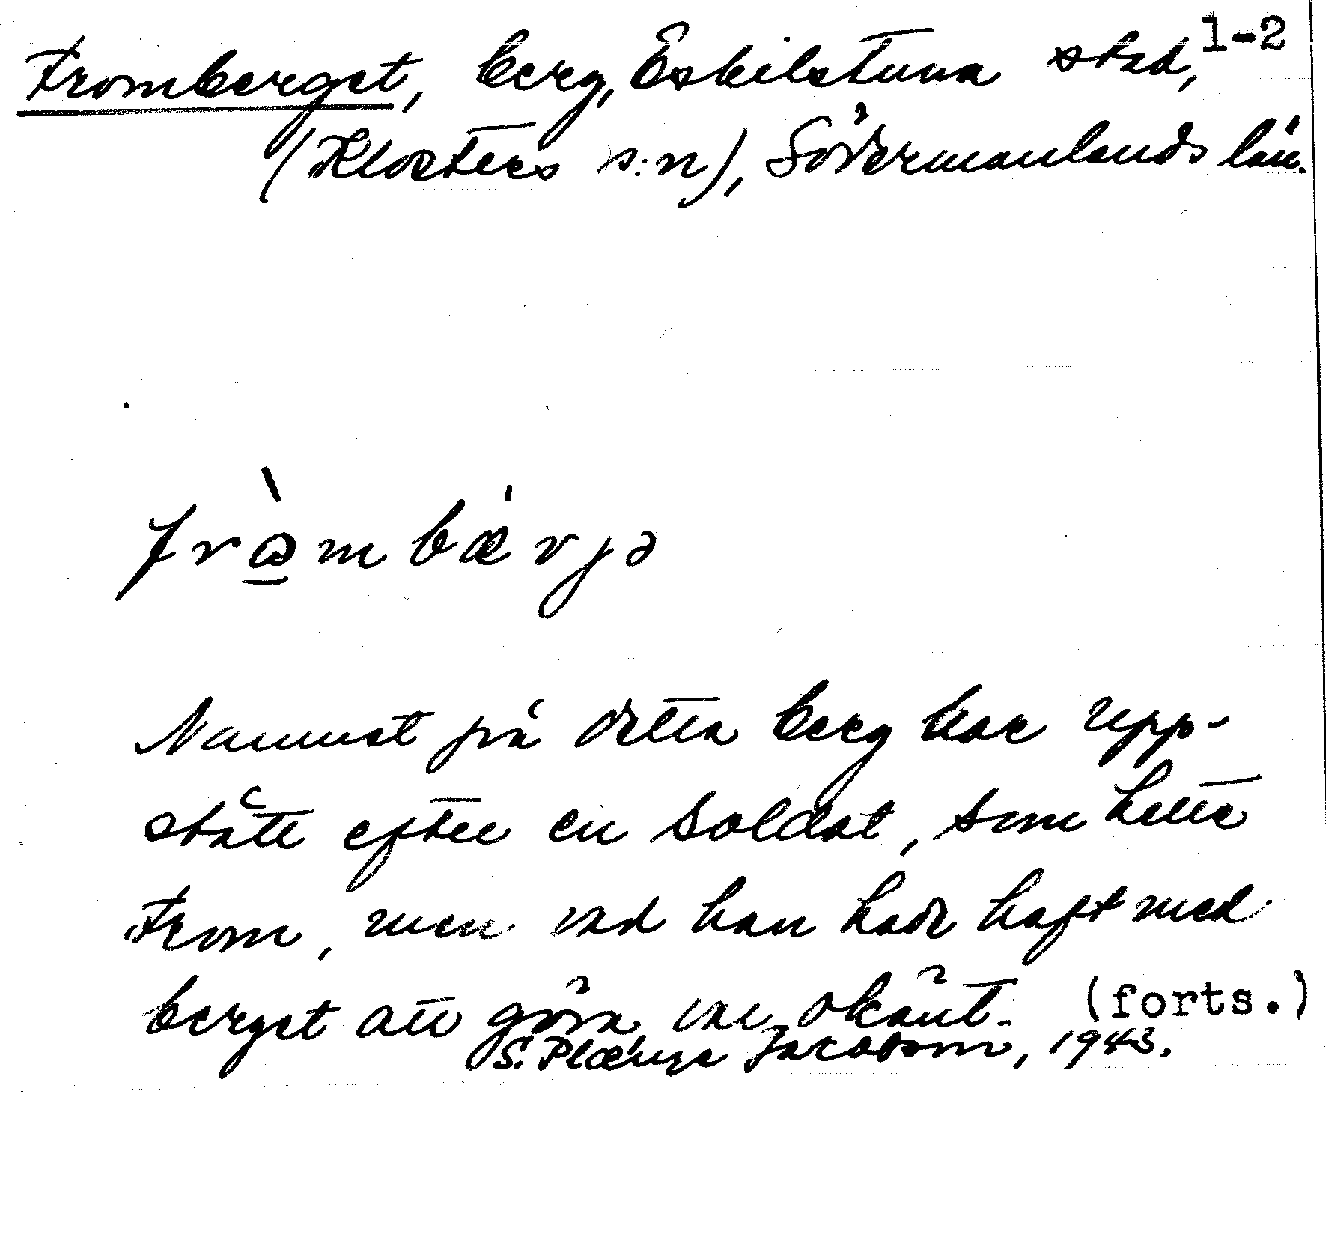 Fromberget, berg, Eskilstuna stad, 1-2
(Klosters s:n), Södermanlands län.
Namnet på detta berg har upp-
stått efter en soldat, som hette
From, men vad han hade haft med
berget att göra var okänt. (forts.)
S. Jacobson, 1943.